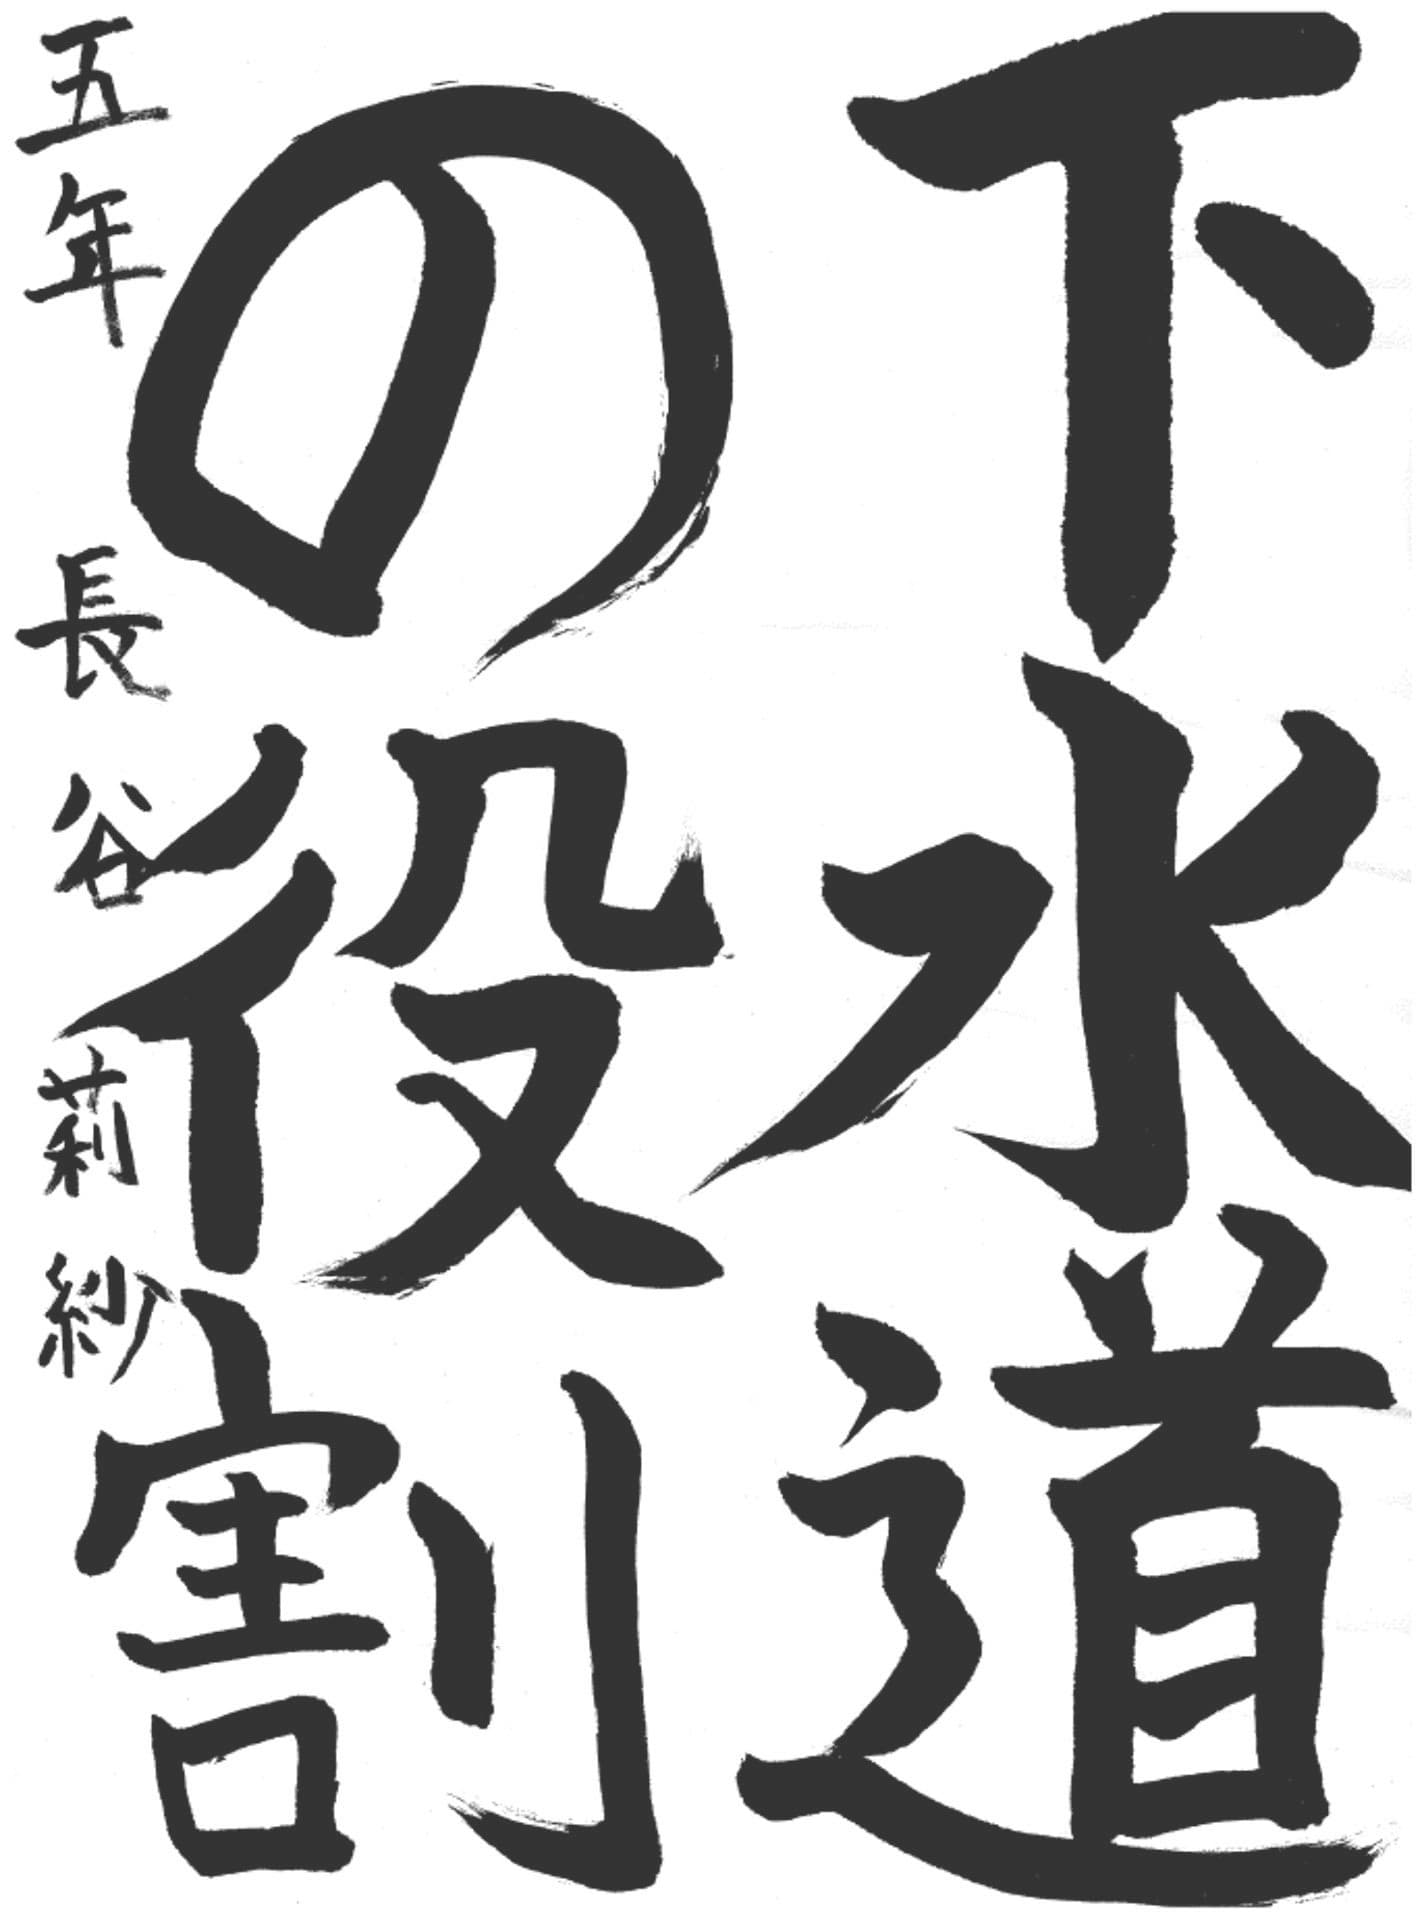 下水道
の役割
五年 長谷莉紗